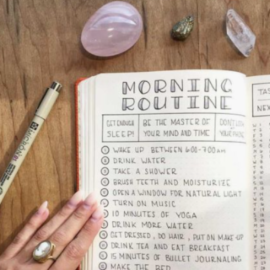 MORNING
ROUTINE
GET ENOUGH
SLEEP!
BE THE MASTER OF
YOUR MIND AND TIME
DON'T
YOUR PHONE
WAKE UP BETWEEN 6:00-7:00 AM
DRINK WATER
TAKE A SHOWER
BRUSH TEETH AND MOISTURIZE
OPEN A WINDOW FOR NATURAL LIGHT
TURN ON MUSIC
10 MINUTES OF YOGA
DRINK MORE WATER
GET DRESSED, DO HAIR, PUT ON MAKE-UP
DRINK TEA AND EAT BREAKFAST
15 MINUTES OF BULLET JOURNALING
MAKE THE BED
TAS
NE